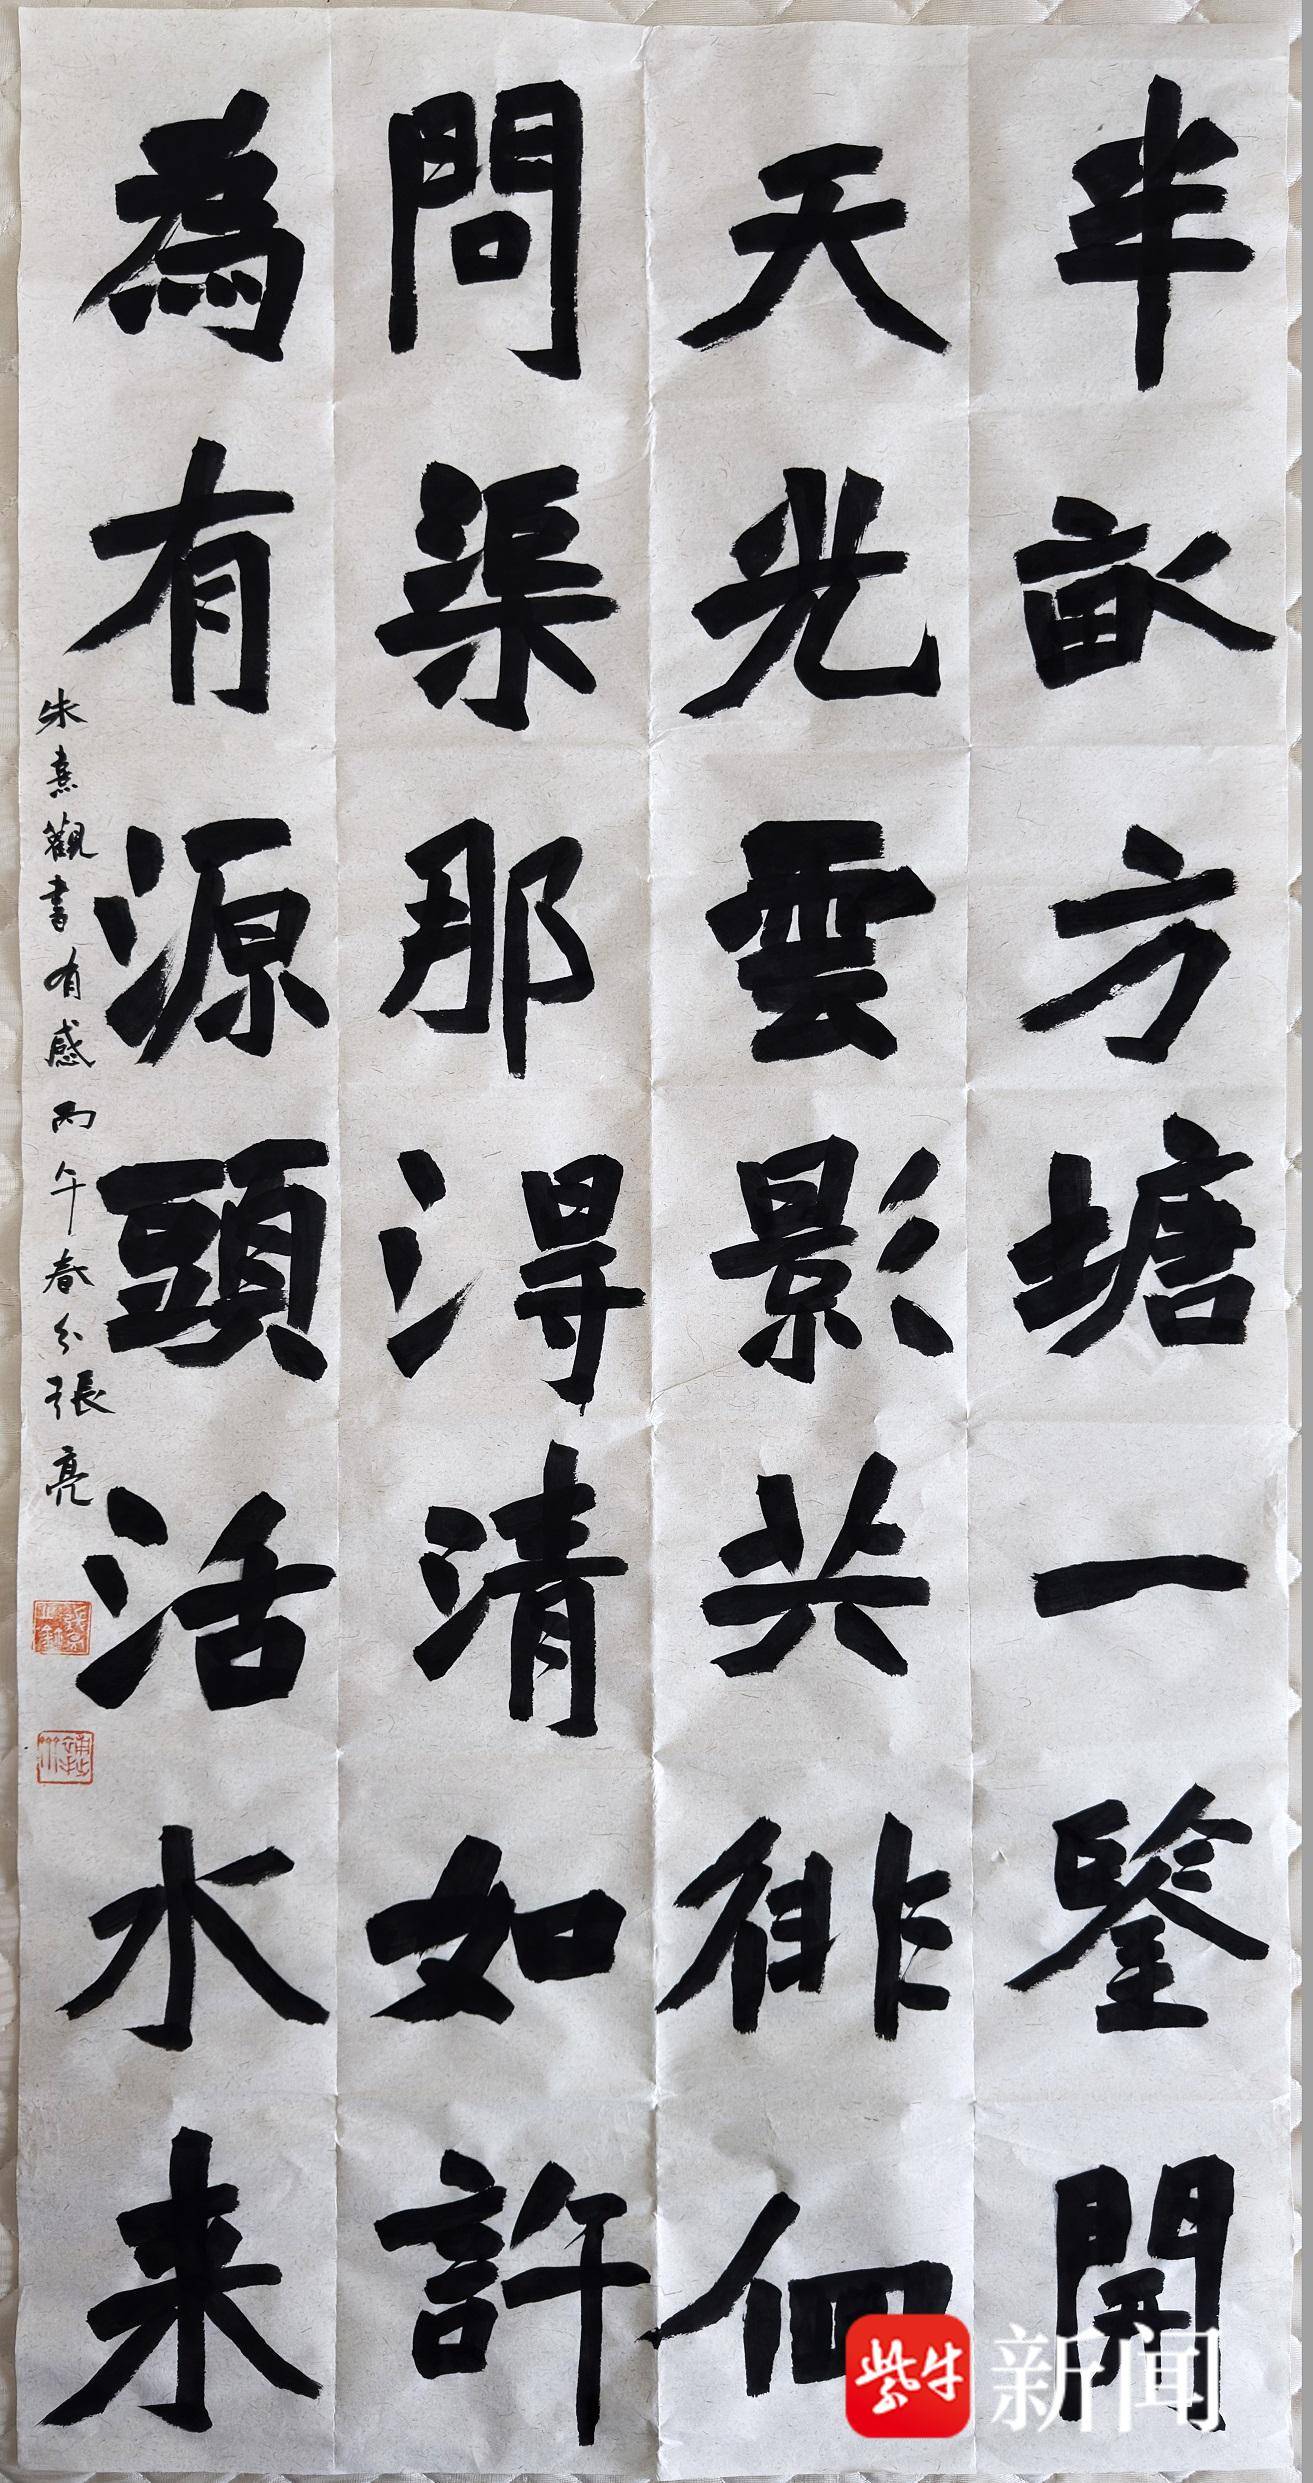 半畝方塘一鑒開
天光雲影共徘徊
問渠那淂清如許
為有源頭活水来
朱熹觀書有感丙午春分張亮
紫牛新闻